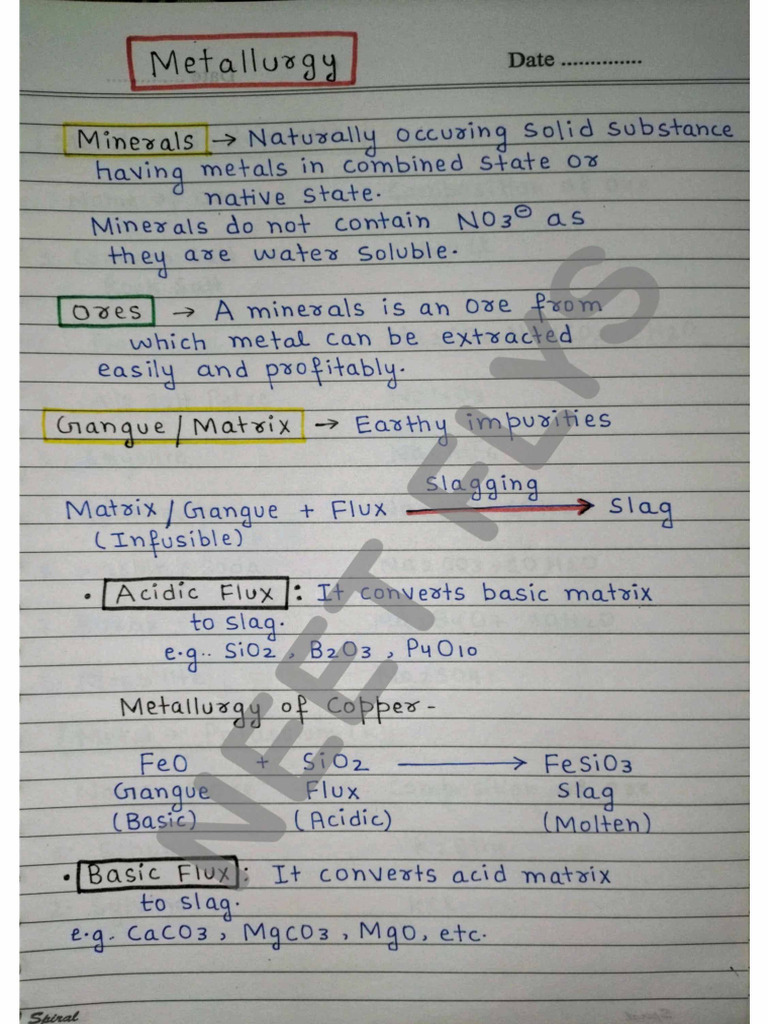 Metallurgy
Date ..............
Minerals → Naturally occuring solid substance
having metals in combined state or
native state.
Minerals do not contain NO3⊖ as
they are water soluble.
Ores → A minerals is an ore from
which metal can be extracted
easily and profitably.
Gangue / Matrix → Earthy impurities
slagging
Matrix / Gangue + Flux → Slag
(Infusible)
• Acidic Flux : It converts basic matrix
to slag.
e.g.. SiO2 , B2O3 , P4O10
Metallurgy of Copper -
FeO + SiO2 → FeSiO3
Gangue Flux Slag
(Basic) (Acidic) (Molten)
• Basic Flux : It converts acid matrix
to slag.
e.g. CaCO3 , MgCO3 , MgO, etc.
Spiral
NEET FLYS